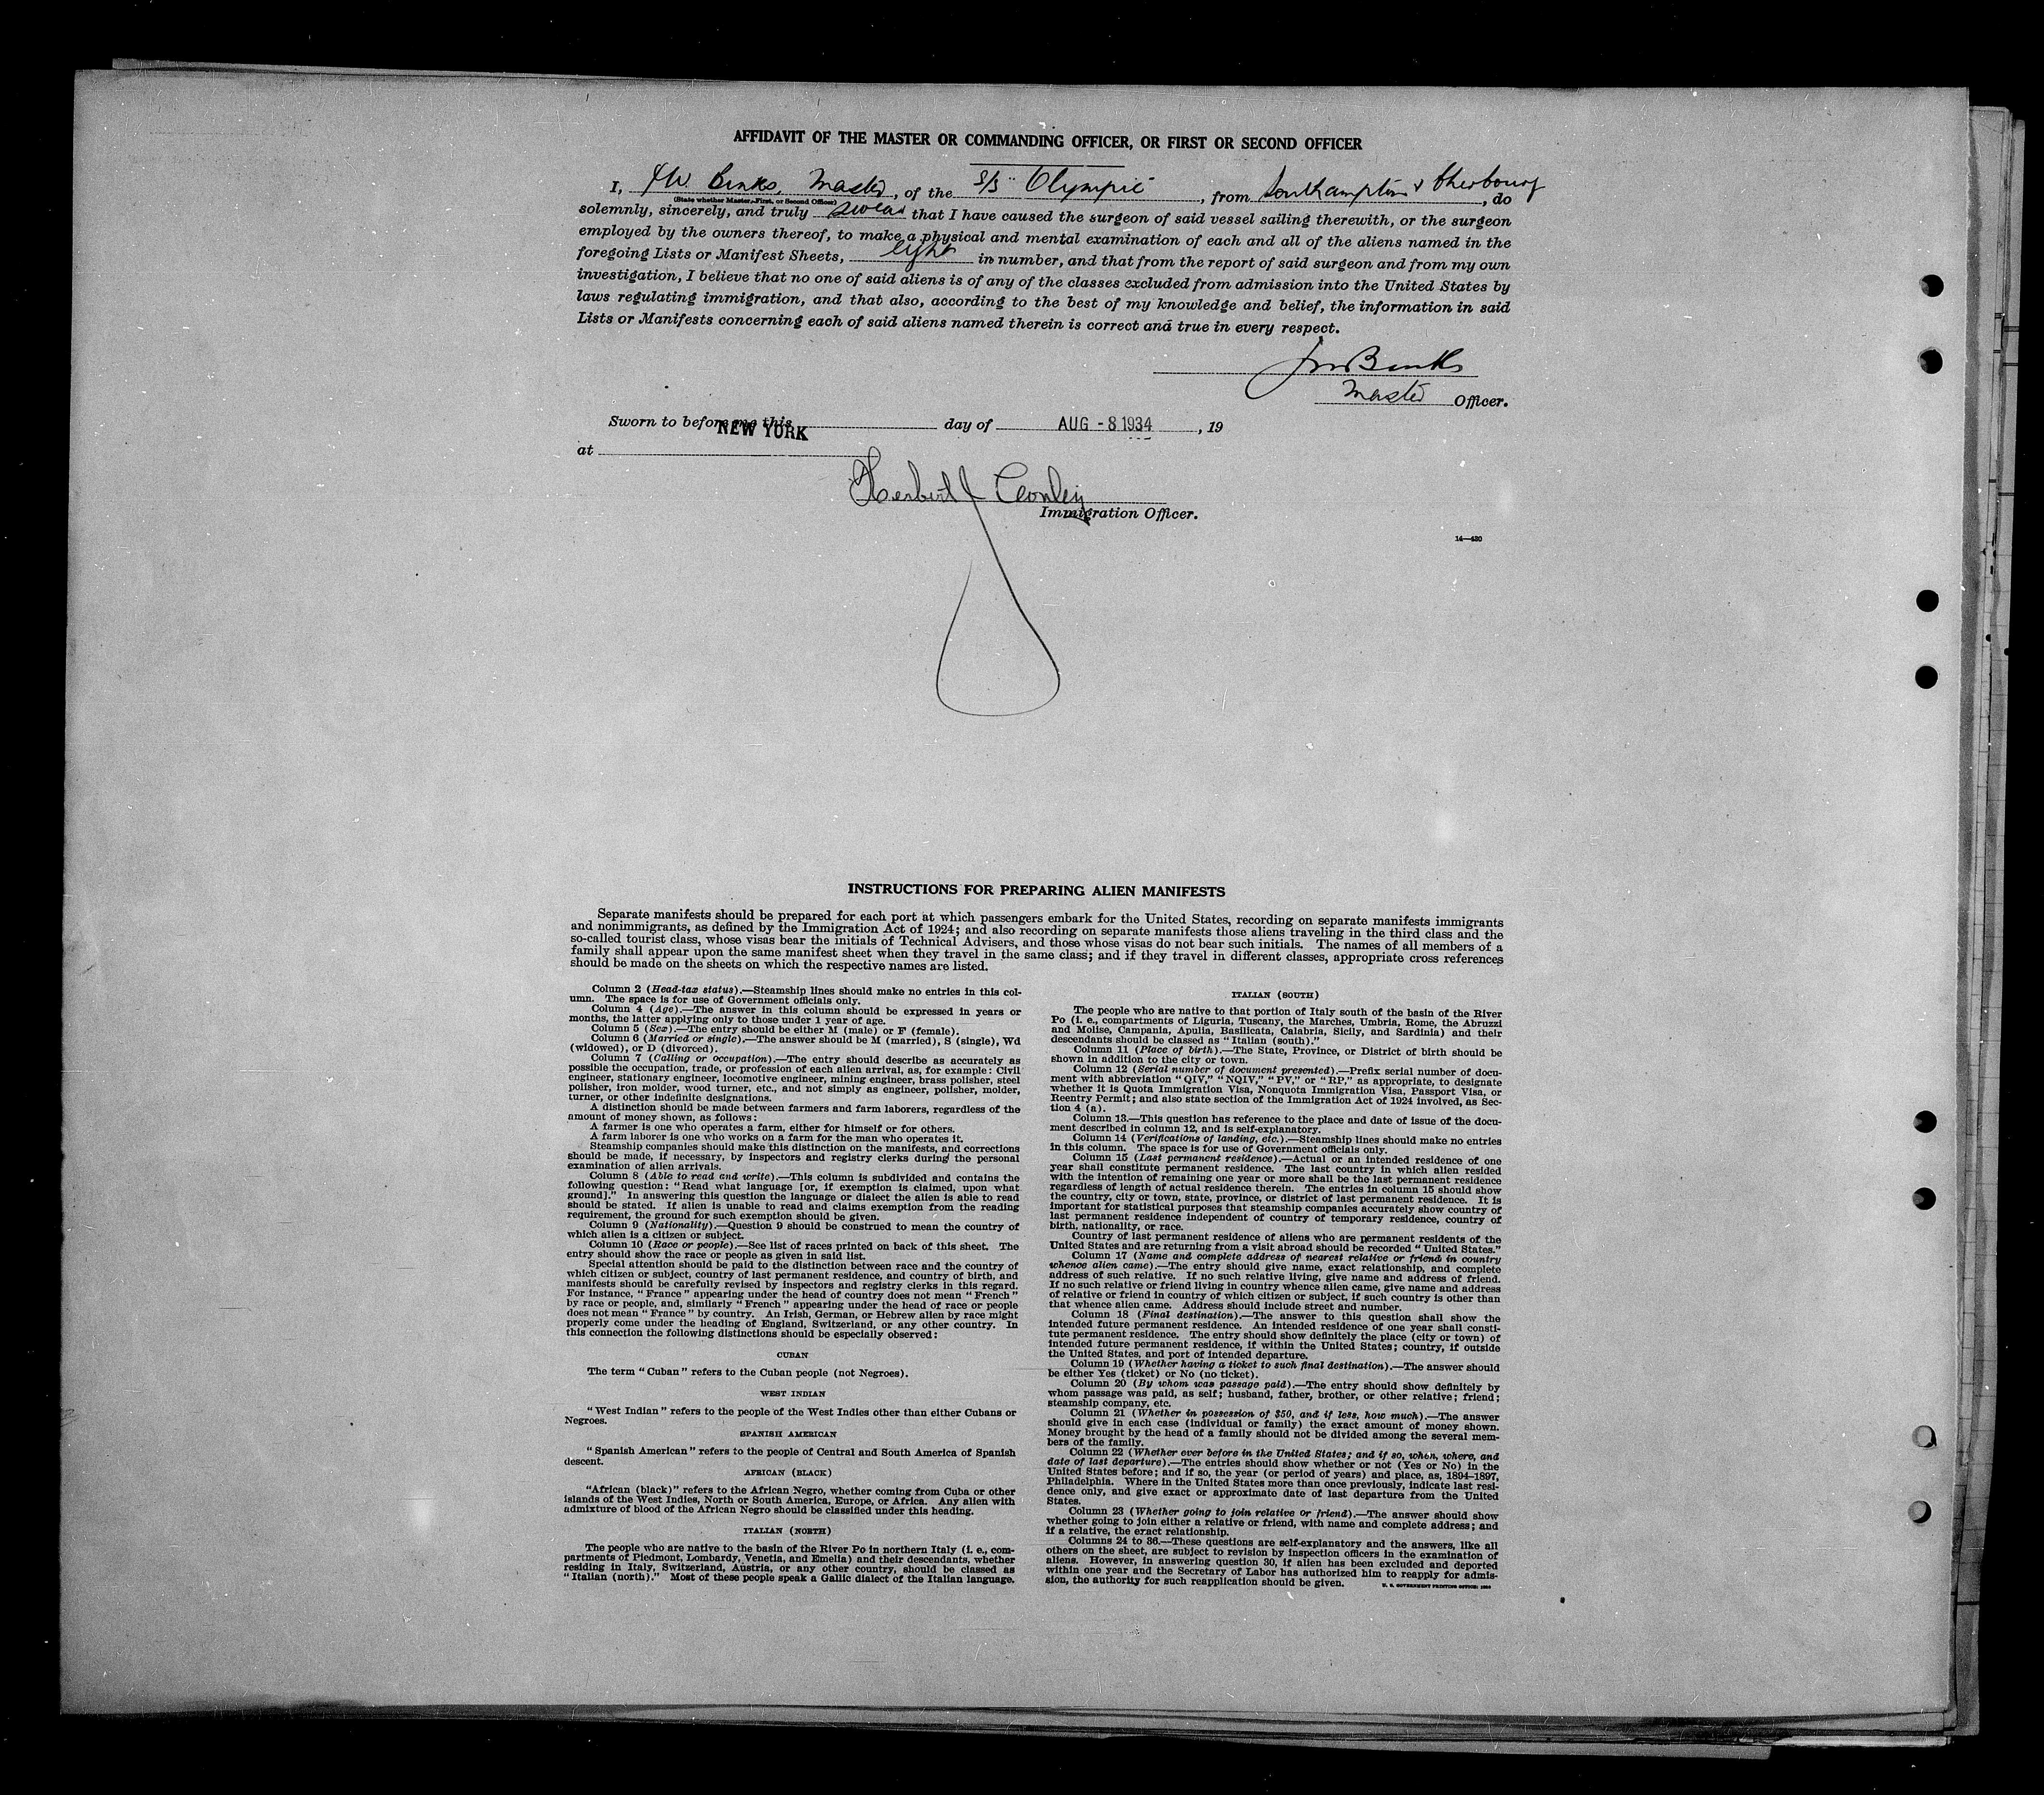 AFFIDAVIT OF THE MASTER OR COMMANDING OFFICER, OR FIRST OR SECOND OFFICER
I, J W Binks, Master, of the S/S "Olympic", from Southampton & Cherbourg, do
(State whether Master, First, or Second Officer)
solemnly, sincerely, and truly swear that I have caused the surgeon of said vessel sailing therewith, or the surgeon
employed by the owners thereof, to make a physical and mental examination of each and all of the aliens named in the
foregoing Lists or Manifest Sheets, eight in number, and that from the report of said surgeon and from my own
investigation, I believe that no one of said aliens is of any of the classes excluded from admission into the United States by
laws regulating immigration, and that also, according to the best of my knowledge and belief, the information in said
Lists or Manifests concerning each of said aliens named therein is correct and true in every respect.
JW Binks
Master Officer.
Sworn to before me this day of AUG - 8 1934, 19
NEW YORK
at
Herbert J
Immigration Officer.
14—430
INSTRUCTIONS FOR PREPARING ALIEN MANIFESTS
Separate manifests should be prepared for each port at which passengers embark for the United States, recording on separate manifests immigrants
and nonimmigrants, as defined by the Immigration Act of 1924; and also recording on separate manifests those aliens traveling in the third class and the
so-called tourist class, whose visas bear the initials of Technical Advisers, and those whose visas do not bear such initials. The names of all members of a
family shall appear upon the same manifest sheet when they travel in the same class; and if they travel in different classes, appropriate cross references
should be made on the sheets on which the respective names are listed.
Column 2 (Head-tax status).—Steamship lines should make no entries in this col-
umn. The space is for use of Government officials only.
Column 4 (Age).—The answer in this column should be expressed in years or
months, the latter applying only to those under 1 year of age.
Column 5 (Sex).—The entry should be either M (male) or F (female).
Column 6 (Married or single).—The answer should be M (married), S (single), Wd
(widowed), or D (divorced).
Column 7 (Calling or occupation).—The entry should describe as accurately as
possible the occupation, trade, or profession of each alien arrival, as, for example: Civil
engineer, stationary engineer, locomotive engineer, mining engineer, brass polisher, steel
polisher, iron molder, wood turner, etc., and not simply as engineer, polisher, molder,
turner, or other indefinite designations.
A distinction should be made between farmers and farm laborers, regardless of the
amount of money shown, as follows:
A farmer is one who operates a farm, either for himself or for others.
A farm laborer is one who works on a farm for the man who operates it.
Steamship companies should make this distinction on the manifests, and corrections
should be made, if necessary, by inspectors and registry clerks during the personal
examination of alien arrivals.
Column 8 (Able to read and write).—This column is subdivided and contains the
following question: "Read what language [or, if exemption is claimed, upon what
ground]." In answering this question the language or dialect the alien is able to read
should be stated. If alien is unable to read and claims exemption from the reading
requirement, the ground for such exemption should be given.
Column 9 (Nationality).—Question 9 should be construed to mean the country of
which alien is a citizen or subject.
Column 10 (Race or people).—See list of races printed on back of this sheet. The
entry should show the race or people as given in said list.
Special attention should be paid to the distinction between race and the country of
which citizen or subject, country of last permanent residence, and country of birth, and
manifests should be carefully revised by inspectors and registry clerks in this regard.
For instance, "France" appearing under the head of country does not mean "French"
by race or people, and, similarly "French" appearing under the head of race or people
does not mean "France" by country. An Irish, German, or Hebrew alien by race might
properly come under the heading of England, Switzerland, or any other country. In
this connection the following distinctions should be especially observed:
CUBAN
The term "Cuban" refers to the Cuban people (not Negroes).
WEST INDIAN
"West Indian" refers to the people of the West Indies other than either Cubans or
Negroes.
SPANISH AMERICAN
"Spanish American" refers to the people of Central and South America of Spanish
descent.
AFRICAN (BLACK)
"African (black)" refers to the African Negro, whether coming from Cuba or other
islands of the West Indies, North or South America, Europe, or Africa. Any alien with
admixture of blood of the African Negro should be classified under this heading.
ITALIAN (NORTH)
The people who are native to the basin of the River Po in northern Italy (i. e., com-
partments of Piedmont, Lombardy, Venetia, and Emelia) and their descendants, whether
residing in Italy, Switzerland, Austria, or any other country, should be classed as
"Italian (north)." Most of these people speak a Gallic dialect of the Italian language.
ITALIAN (SOUTH)
The people who are native to that portion of Italy south of the basin of the River
Po (i. e., compartments of Liguria, Tuscany, the Marches, Umbria, Rome, the Abruzzi
and Molise, Campania, Apulia, Basilicata, Calabria, Sicily, and Sardinia) and their
descendants should be classed as "Italian (south)."
Column 11 (Place of birth).—The State, Province, or District of birth should be
shown in addition to the city or town.
Column 12 (Serial number of document presented).—Prefix serial number of docu-
ment with abbreviation "QIV," "NQIV," "PV," or "RP," as appropriate, to designate
whether it is Quota Immigration Visa, Nonquota Immigration Visa, Passport Visa, or
Reentry Permit; and also state section of the Immigration Act of 1924 involved, as Sec-
tion 4 (a).
Column 13.—This question has reference to the place and date of issue of the docu-
ment described in column 12, and is self-explanatory.
Column 14 (Verifications of landing, etc.).—Steamship lines should make no entries
in this column. The space is for use of Government officials only.
Column 15 (Last permanent residence).—Actual or an intended residence of one
year shall constitute permanent residence. The last country in which alien resided
with the intention of remaining one year or more shall be the last permanent residence
regardless of length of actual residence therein. The entries in column 15 should show
the country, city or town, state, province, or district of last permanent residence. It is
important for statistical purposes that steamship companies accurately show country of
last permanent residence independent of country of temporary residence, country of
birth, nationality, or race.
Country of last permanent residence of aliens who are permanent residents of the
United States and are returning from a visit abroad should be recorded "United States."
Column 17 (Name and complete address of nearest relative or friend in country
whence alien came).—The entry should give name, exact relationship, and complete
address of such relative. If no such relative living, give name and address of friend.
If no such relative or friend living in country whence alien came, give name and address
of relative or friend in country of which citizen or subject, if such country is other than
that whence alien came. Address should include street and number.
Column 18 (Final destination).—The answer to this question shall show the
intended future permanent residence. An intended residence of one year shall consti-
tute permanent residence. The entry should show definitely the place (city or town) of
intended future permanent residence, if within the United States; country, if outside
the United States, and port of intended departure.
Column 19 (Whether having a ticket to such final destination).—The answer should
be either Yes (ticket) or No (no ticket).
Column 20 (By whom was passage paid).—The entry should show definitely by
whom passage was paid, as self; husband, father, brother, or other relative; friend;
steamship company, etc.
Column 21 (Whether in possession of $50, and if less, how much).—The answer
should give in each case (individual or family) the exact amount of money shown.
Money brought by the head of a family should not be divided among the several mem-
bers of the family.
Column 22 (Whether ever before in the United States; and if so, when, where, and
date of last departure).—The entries should show whether or not (Yes or No) in the
United States before; and if so, the year (or period of years) and place, as, 1894–1897,
Philadelphia. Where in the United States more than once previously, indicate last resi-
dence only, and give exact or approximate date of last departure from the United
States.
Column 23 (Whether going to join relative or friend).—The answer should show
whether going to join either a relative or friend, with name and complete address; and
if a relative, the exact relationship.
Columns 24 to 36.—These questions are self-explanatory and the answers, like all
others on the sheet, are subject to revision by inspection officers in the examination of
aliens. However, in answering question 30, if alien has been excluded and deported
within one year and the Secretary of Labor has authorized him to reapply for admis-
sion, the authority for such reapplication should be given.
U. S. GOVERNMENT PRINTING OFFICE: